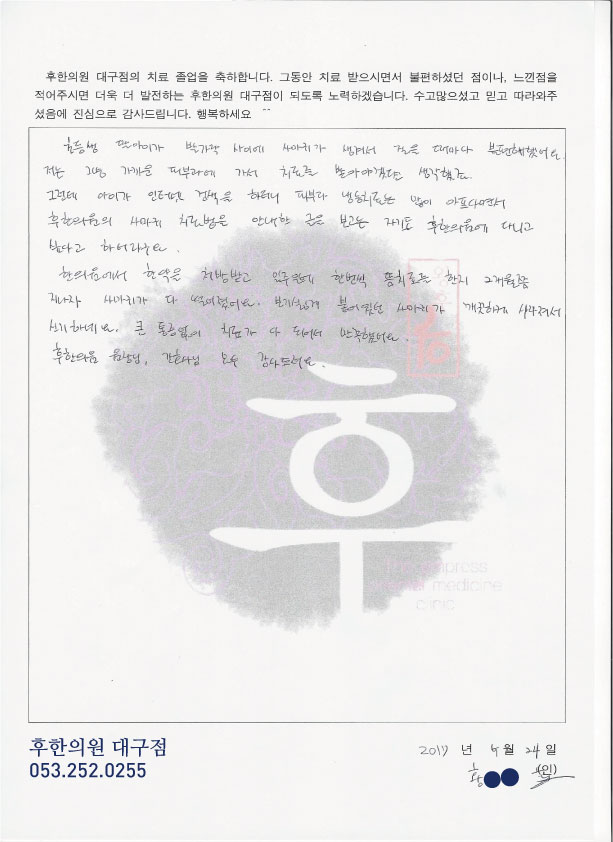 후한의원 대구점의 치료 졸업을 축하합니다. 그동안 치료 받으시면서 불편하셨던 점이나, 느낀점을
적어주시면 더욱 더 발전하는 후한의원 대구점이 되도록 노력하겠습니다. 수고많으셨고 믿고 따라와주
셨음에 진심으로 감사드립니다. 행복하세요 ^^
초등생 딸아이가 발가락 사이에 사마귀가 생겨서 걸을 때마다 불편해했어요.
저는 그냥 가까운 피부과에 가서 치료를 받아야겠다 생각했는
그런데 아이가 인터넷 검색을 하더니 피부과 냉동치료는 많이 아프다면서
후한의원의 사마귀 치료법을 안내한 글을 보고는 자기도 후한의원에 다니고
싶다고 하더라구요.
한의원에서 한약을 처방받고 일주일에 한번씩 뜸치료를 한지 2개월쯤
지나자 사마귀가 다 떨어졌어요. 보기싫게 붙어있던 사마귀가 깨끗하게 사라져서
신기하네요. 큰 통증없이 치료가 다 되어서 만족했어요.
후한의원 원장님, 간호사님 모두 감사드려요.
후
medicine
clinic
후한의원 대구점
053.252.0255
2017 년 월 24 일
황 (인)